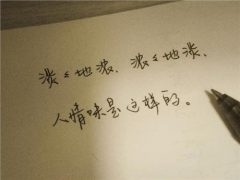 淡々地浓、浓々地淡，
人情味是这样的。